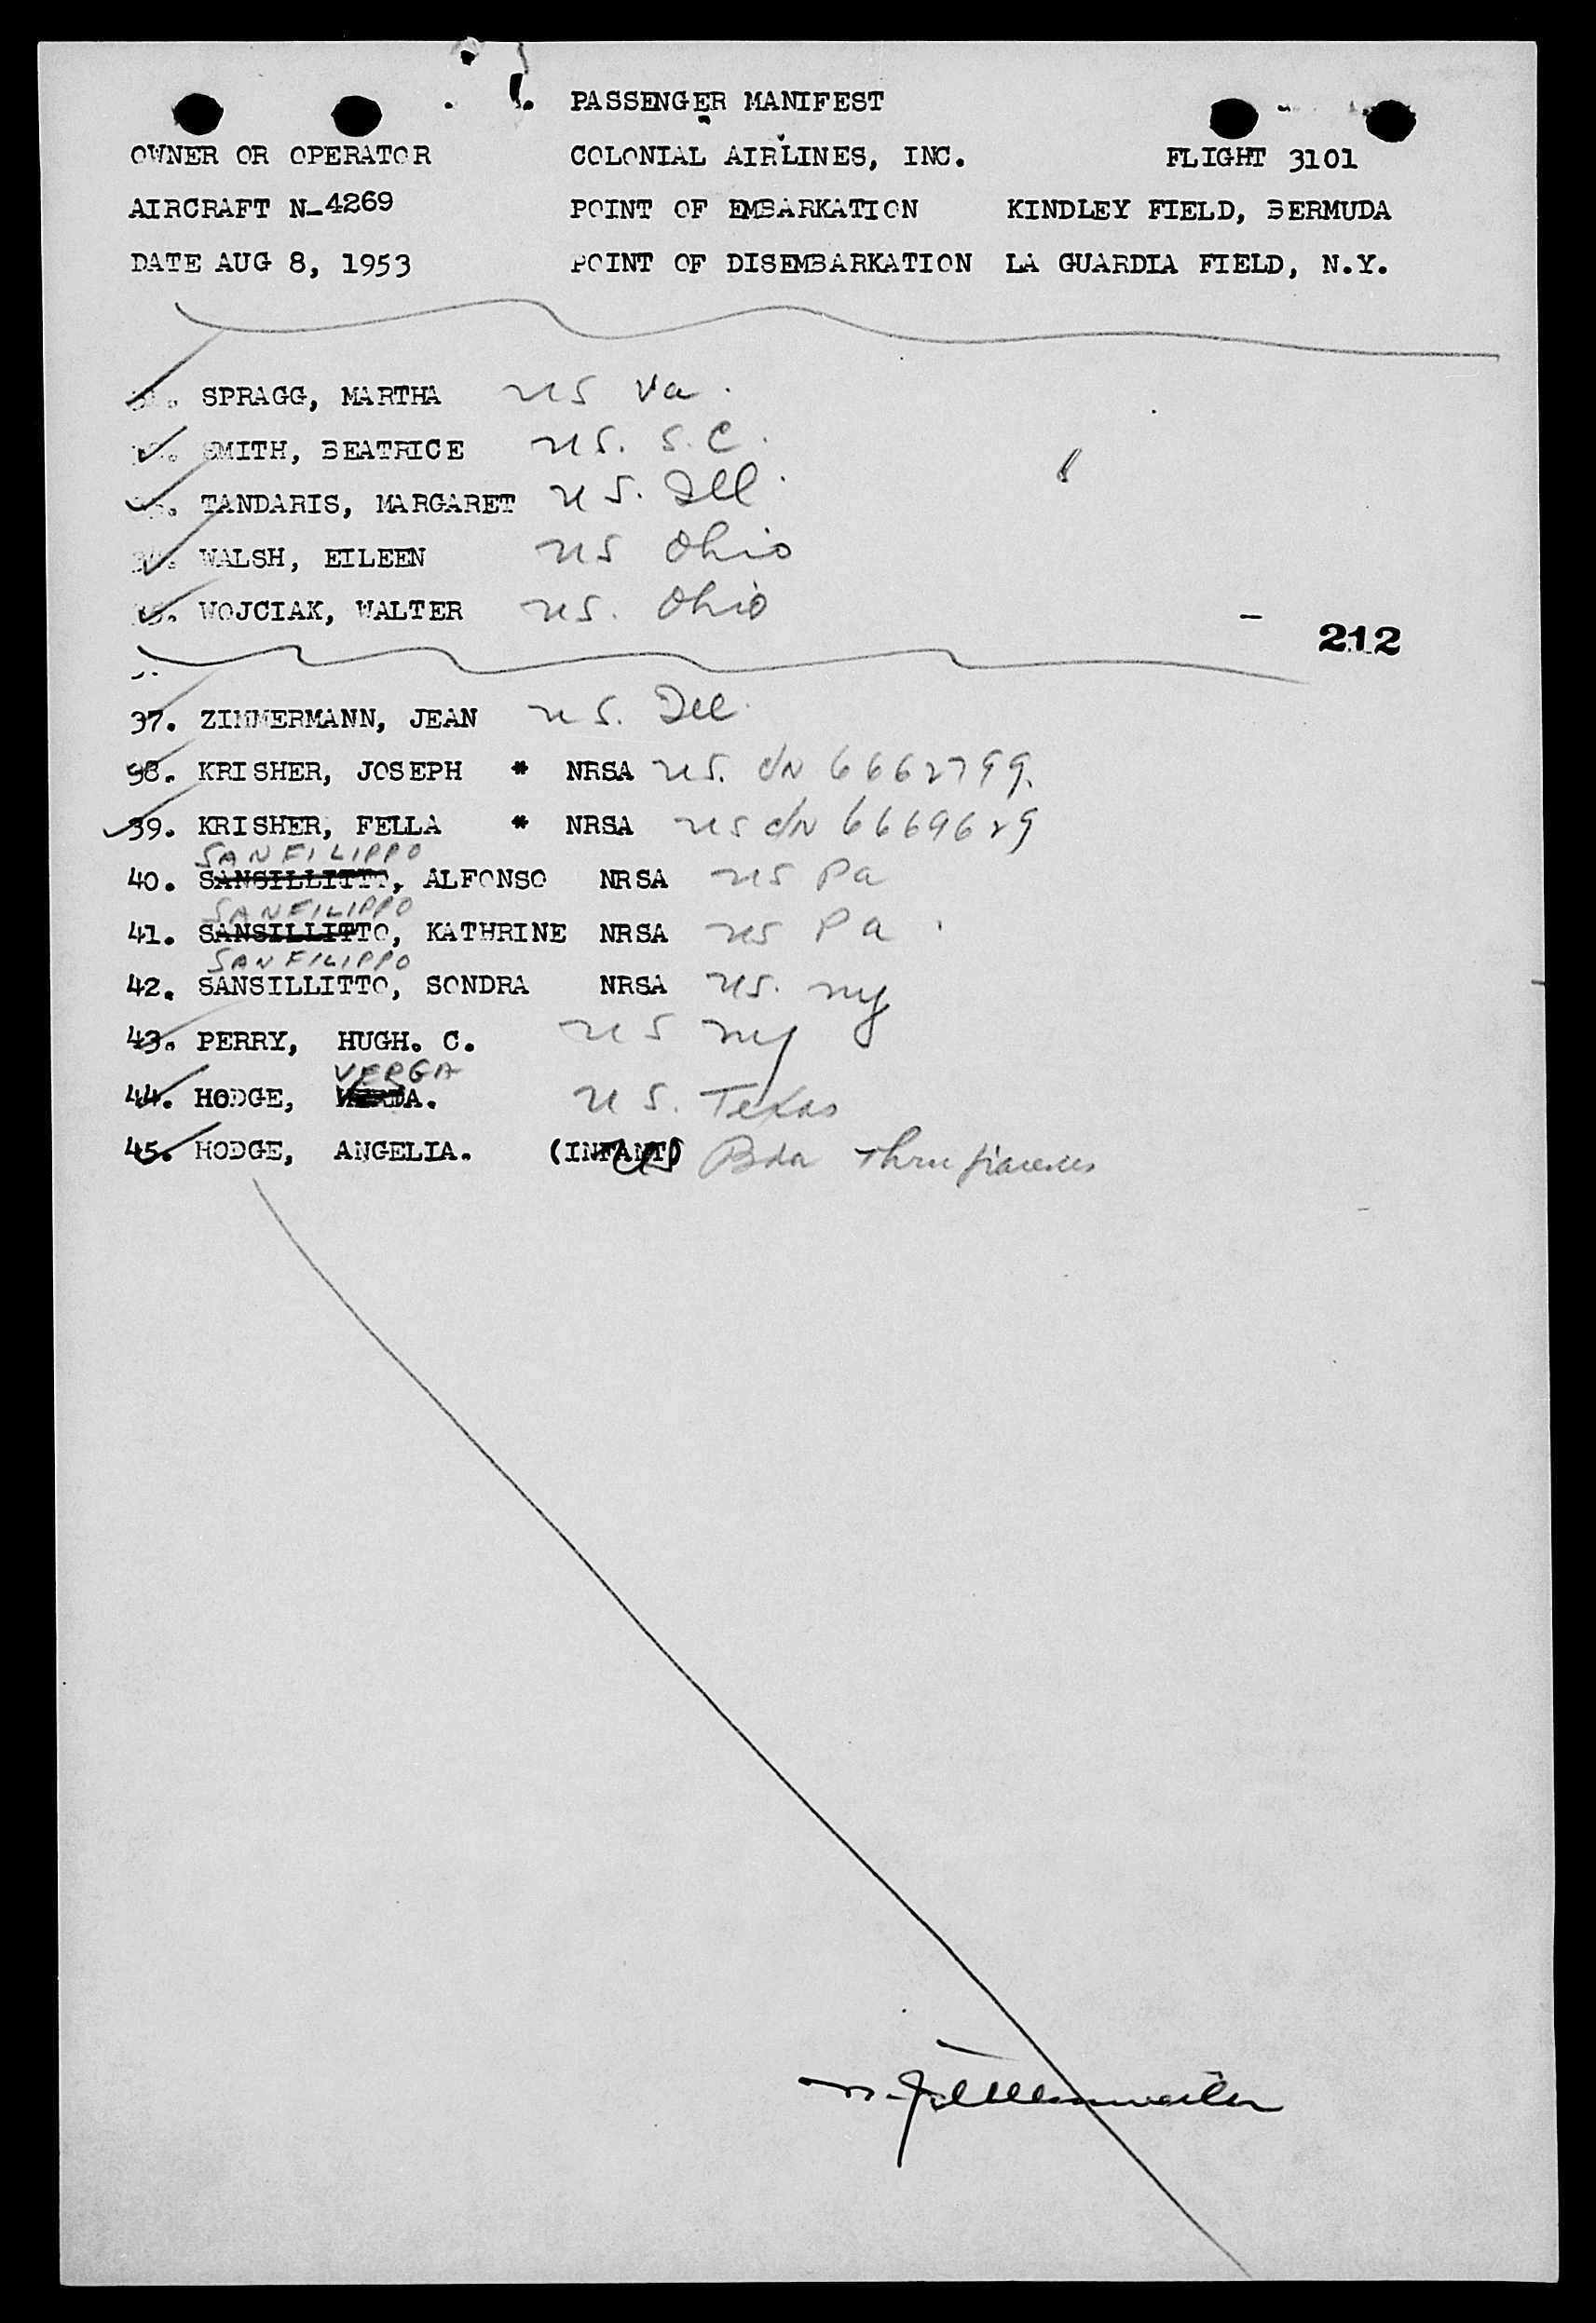 PASSENGER MANIFEST
OWNER OR OPERATOR COLONIAL AIRLINES, INC. FLIGHT 3101
AIRCRAFT N-4269 POINT OF EMBARKATION KINDLEY FIELD, BERMUDA
DATE AUG 8, 1953 POINT OF DISEMBARKATION LA GUARDIA FIELD, N.Y.
SPRAGG, MARTHA US Va.
SMITH, BEATRICE US. S.C.
TANDARIS, MARGARET US. Ill.
WALSH, EILEEN US Ohio
WOJCIAK, WALTER US. Ohio
212
37. ZIMMERMANN, JEAN US. Ill.
38. KRISHER, JOSEPH * NRSA US. C/N 6662799.
39. KRISHER, FELLA * NRSA US C/N 6669629
SANFILIPPO
40. SANSILLITTO, ALFONSO NRSA US Pa
SANFILIPPO
41. SANSILLITTO, KATHRINE NRSA US Pa.
SANFILIPPO
42. SANSILLITTO, SONDRA NRSA US. NY
43. PERRY, HUGH. C. US NY
VERGA
44. HODGE, US. Texas
45. HODGE, ANGELIA. (INFANT) US Bda Thru